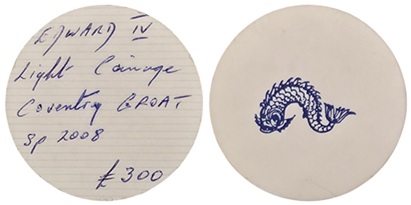 EDWARD IV
Light Coinage
Coventry GROAT
Sp 2008
£300